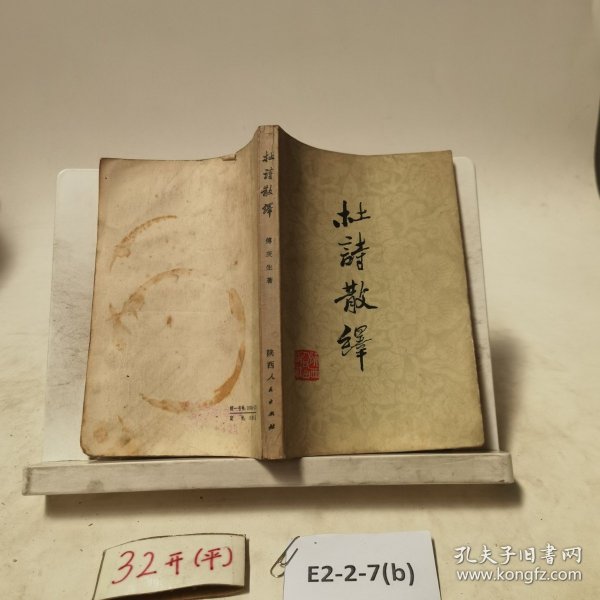 杜詩散繹
傅庚生著
陕西人民出版社
杜詩散繹
32开(平)
E2-2-7(b)
孔夫子旧书网
www.kongfz.com